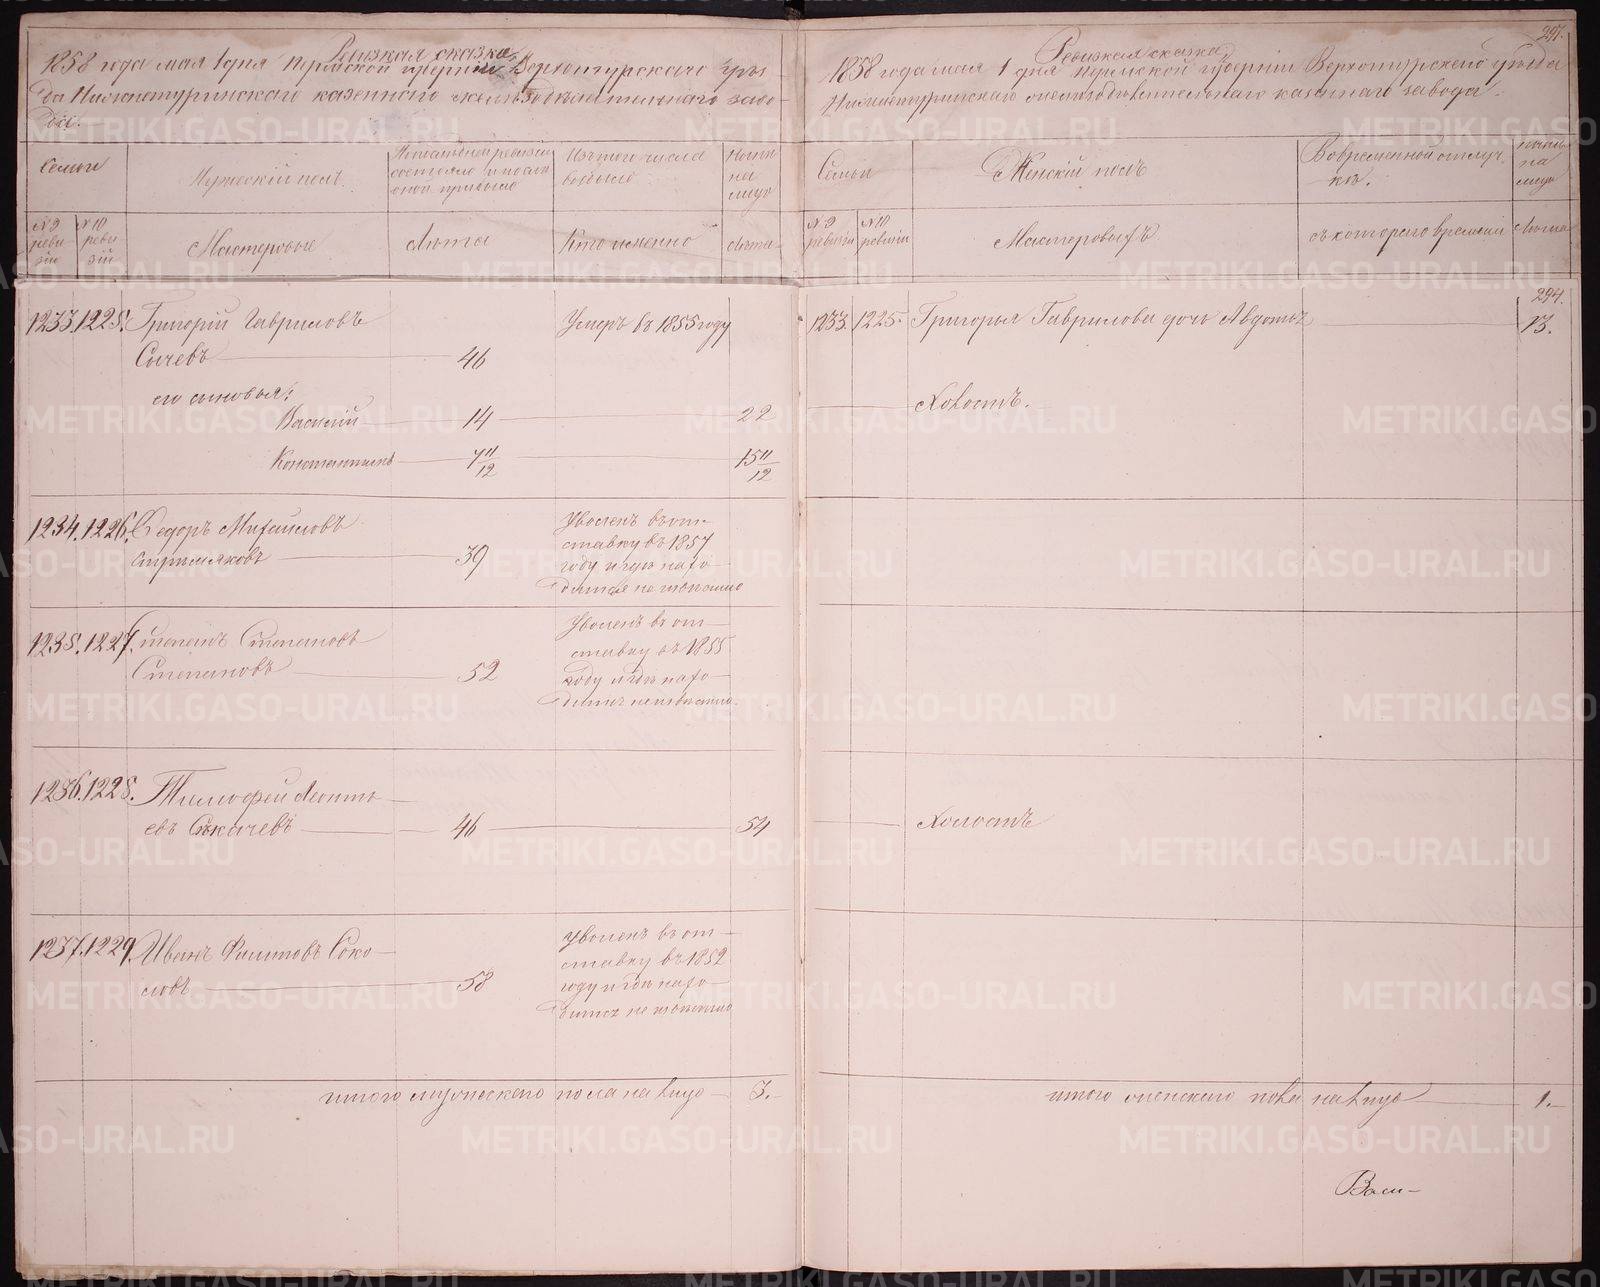 Ревизкая сказка
1858 года мая 1 дня Пермской губернiи Верхотурскаго уѣз
да Нижнетуринскаго казеннаго желѣзодѣлательнаго заво-
да.
Семьи
Мужескiй полъ.
По последней ревизiи
состояло и после
оной прибыло
Изъ того числа
выбыло
Ныне
на
лицо
№ 9
реви-
зiи
№ 10
реви
зiй
Мастеровые
Лѣта
Кто именно
Лѣта
1233. 1225. Григорiй Гавриловъ
Сычевъ 46
Умеръ въ 1855 году
его сыновья:
Василiй 14 22
Константинъ 7 11/12 15 11/12
1234. 1226. Федоръ Михайловъ
39
Уволенъ въ от-
ставку въ 1857
году и где нахо-
дится не известно
1235. 1227. Степанъ Степановъ
Степановъ 52
Уволенъ въ от-
ставку въ 1855
году и где нахо-
дится неизвестно
1236. 1228. Тимофей Леонтье
евъ Сыкачевъ 46 54
1237. 1229. Иванъ Филиповъ Соко-
ловъ 58
Уволенъ въ от-
ставку въ 1852
году и где нахо-
дится не известно
итого мужескаго пола на лицо 3.
297.
Ревизкая сказка
1858 года мая 1 дня Пермской губернiи Верхотурскаго уѣзда
Нижнетуринскаго желѣзодѣлательнаго казеннаго завода.
Семьи
Женскiй полъ
Во временной отлуч-
кѣ.
Ныне
на
лицо
№ 9
ревизiи
№ 10
ревизiи
Мастеровыхъ
съ котораго времени
Лѣта
294.
1233. 1225. Григорья Гаврилова дочь Авдотья 13.
Холостъ.
Холостъ
итого женскаго пола на лицо 1.
Васи-
METRIKI.GASO-URAL.RU